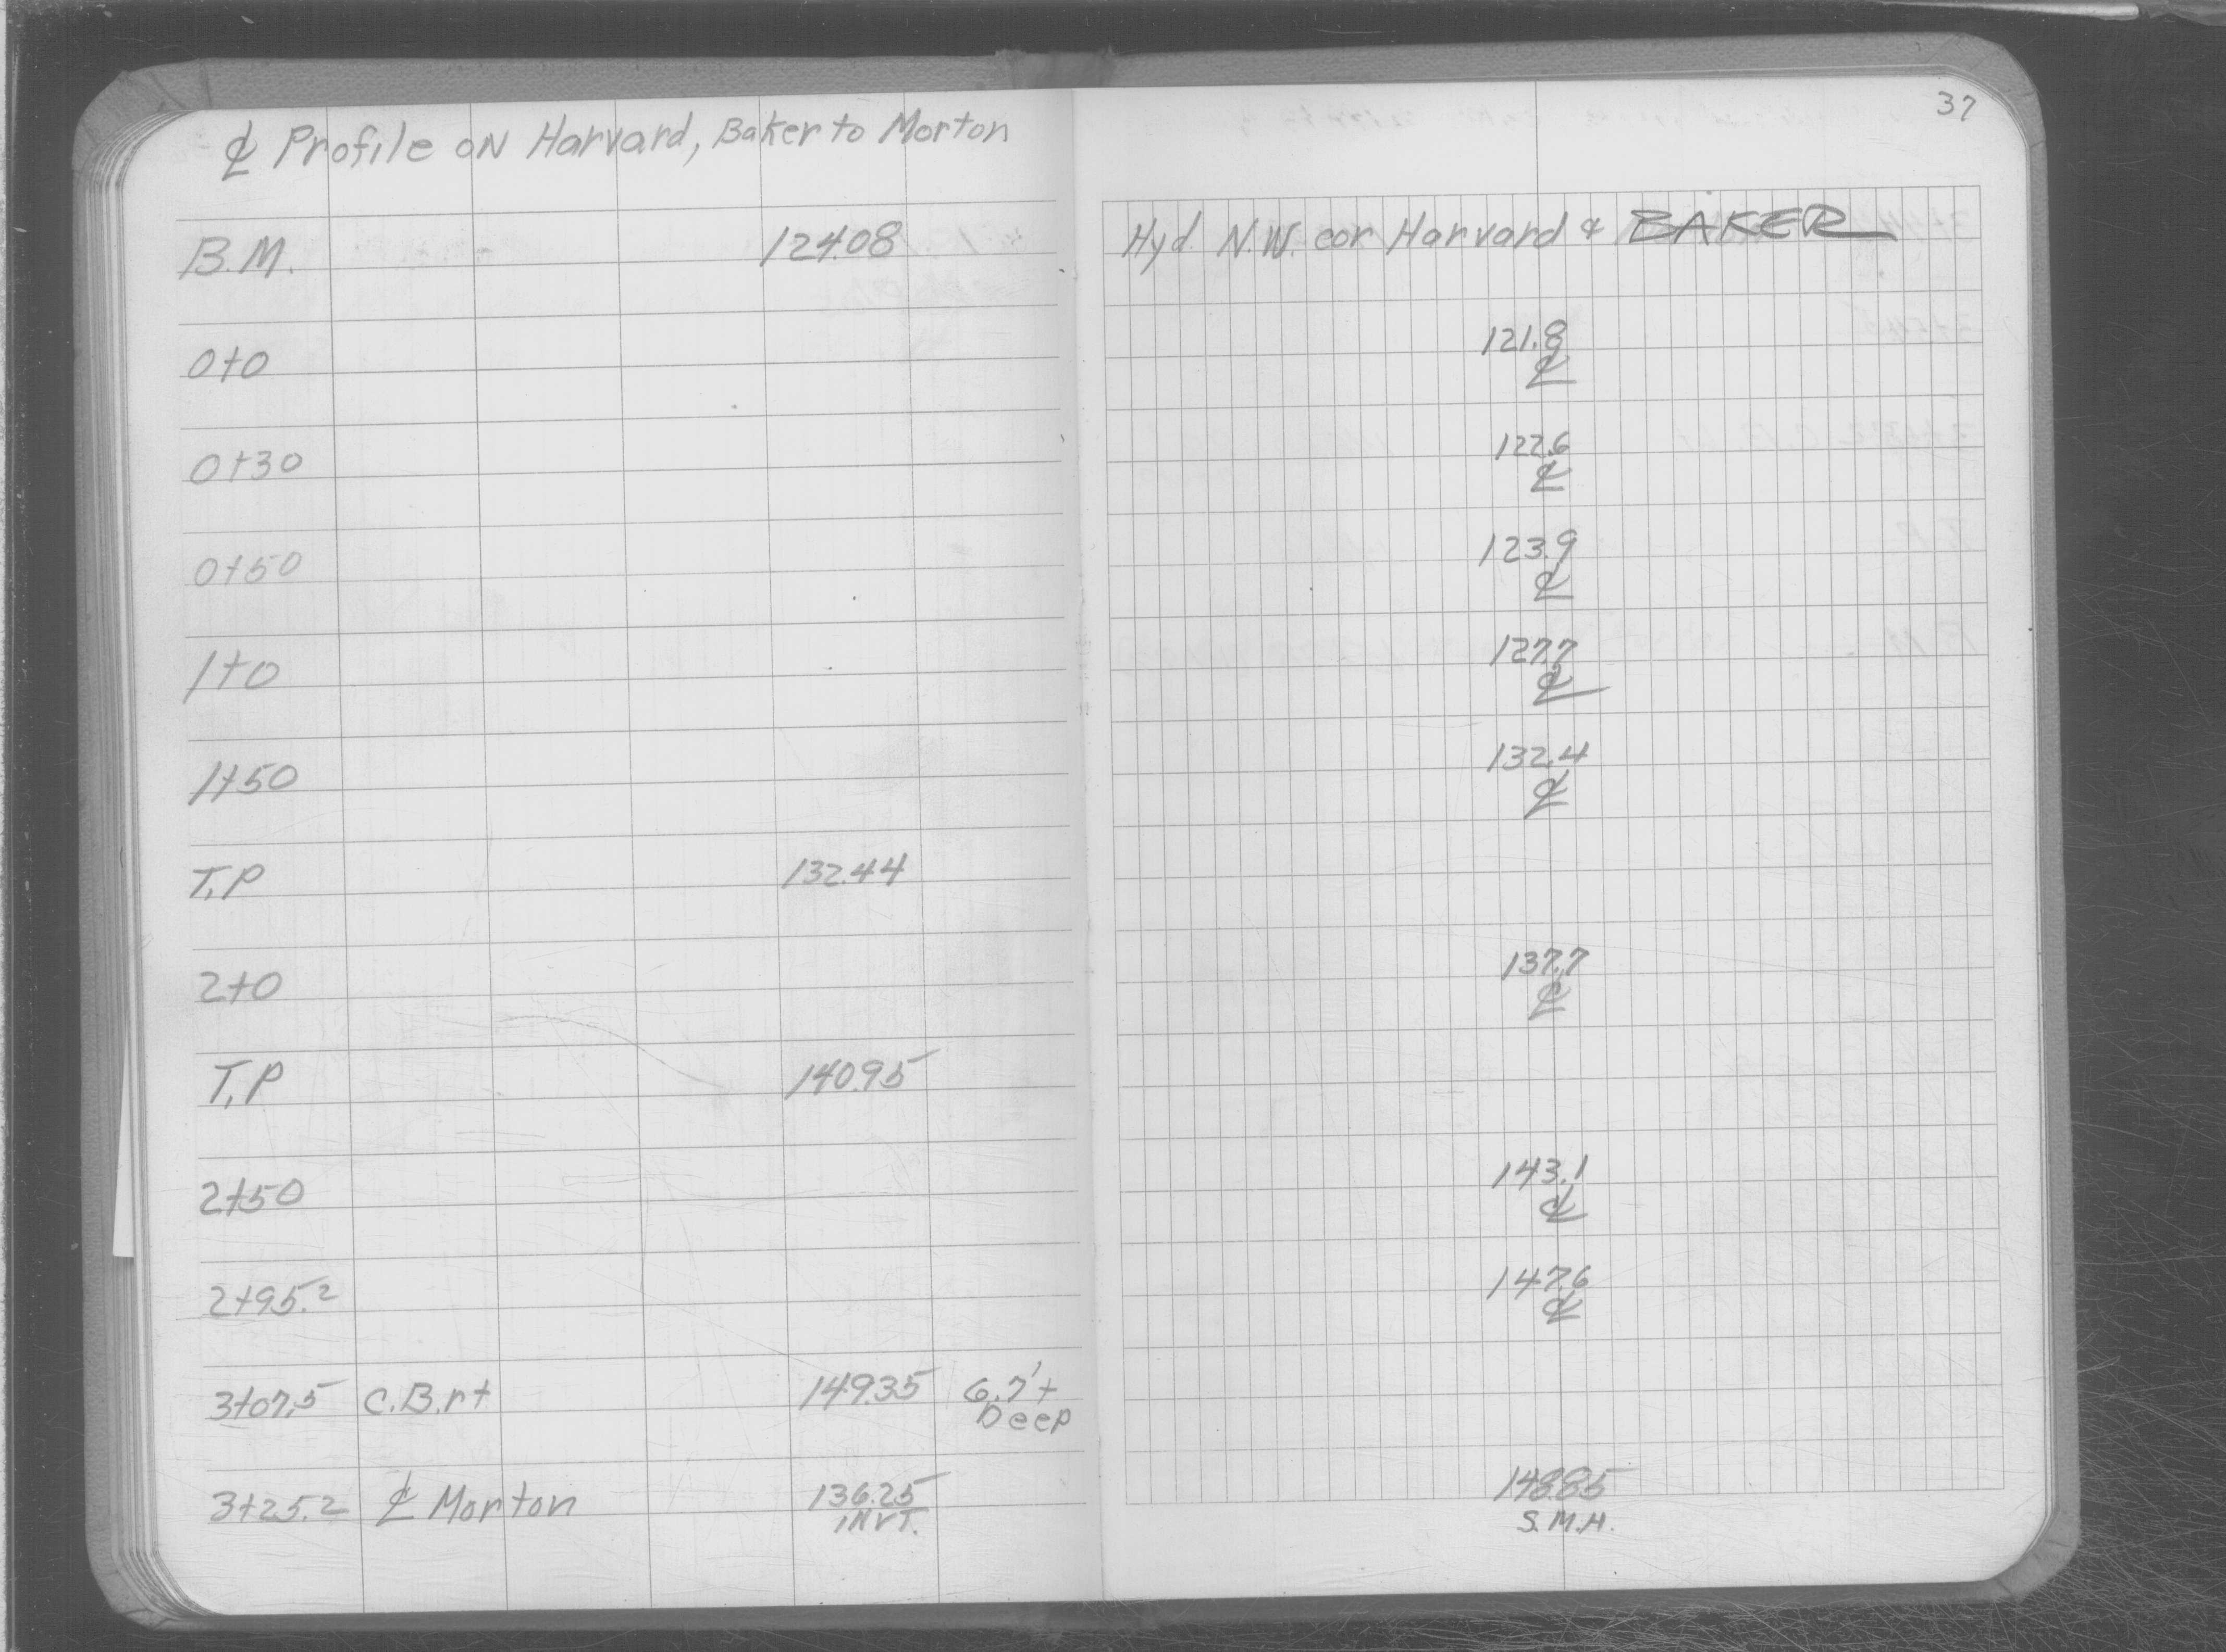 37
℄ Profile on Harvard, Baker to Morton
B.M. 124.08 Hyd. N.W. cor Harvard & BAKER
0+0 121.8
℄
0+30 122.6
℄
0+50 123.9
℄
1+0 127.7
℄
1+50 132.4
℄
T.P 132.44
2+0 137.7
℄
T.P 140.95
2+50 143.1
℄
2+95.2 147.6
℄
3+07.5 C.B.rt 149.35 6.7'±
Deep
3+25.2 ℄ Morton 136.25 148.85
INVT. S.M.H.